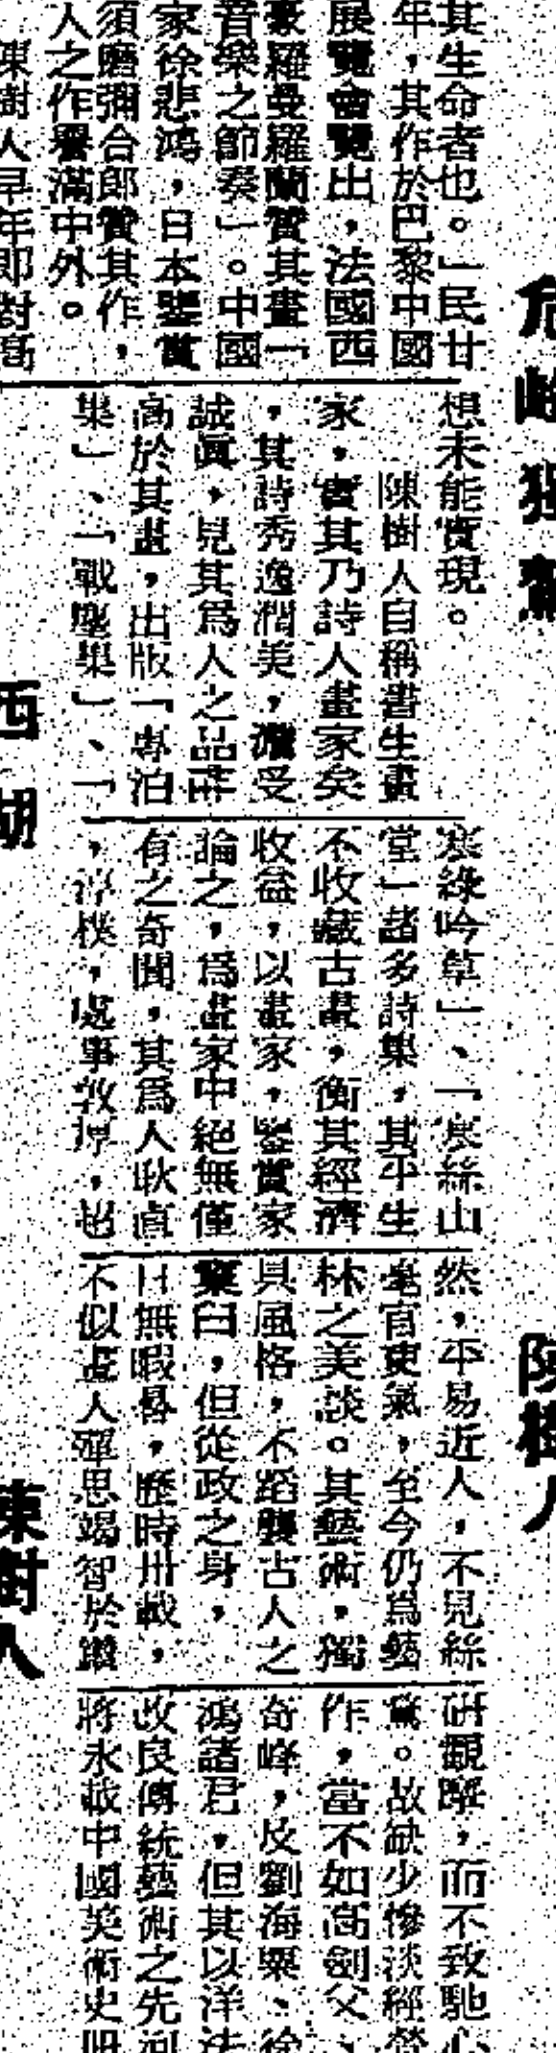 其生命者也。」民廿
年,其作於巴黎中國
展覽會覽出,法國西
豪羅曼羅蘭賞其畫一
音樂之節奏」。中國
家徐悲鴻,日本鑒賞
須磨彌合郎賞其作,
人之作譽滿中外。
陳樹人早年即對高
想未能實現。
陳樹人自稱書生畫
家,實其乃詩人畫家矣
,其詩秀逸潤美,受
誠眞,見其爲人之品
高於其畫,出版「專泊
集」、「戰塵集」、「
寒綠吟草」、「寒綠山
堂」諸多詩集,其平生
不收藏古畫,衡其經濟
收益,以畫家,鑒賞家
論之,爲畫家中絕無僅
有之奇聞,其爲人耿直
,淳樸,處事敦厚,超
然,平易近人,不見絲
毫官吏氣,至今仍爲藝
林之美談。其藝術,獨
具風格,不蹈襲古人之
窠臼,但從政之身,
日無暇晷,歷時卅載,
不似畫人殫思竭智於鑽
研觀摩,而不致馳心
。故缺少慘淡經營
作,當不如高劍父、
奇峰,及劉海粟、徐
鴻諸君,但其以洋法
改良傳統藝術之先河
將永載中國美術史册
危峰獨
西湖
陳樹人
陳樹人